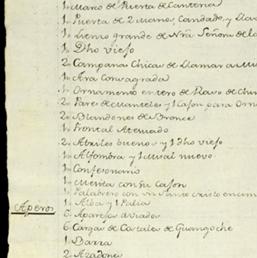 1„ Marco de Puerta de Canteria
1„ Puerta de 2 manos, Candado, y Llav
1„ Lienso grande de Nra Señora de lo
1„ Dho viejo
2„ Campanas Chicas de Llamar a Mi
1„ Ara Consagrada
1„ Ornamento entero de Raso de Chin
2„ Pares de Manteles y 1 Cajon para Orn
2„ Blandones de Bronce
1„ Frontal
2„ Atriles buenos y 1 Dho viejo
1„ Alfombra y 1 Misal nuevo
1„ Confesonario
1„ mesita con su Cajon
1„ Palabrero con un Santo Cristo encim
1„ Alba y 1 Palia
Aperos
6„ Aparejos aviados
6„ Cargas de Costales de Guangoche
1„ Barra
2„ Azadones